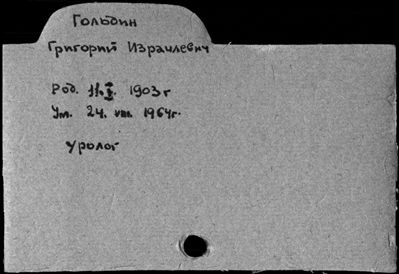 Гольдин
Григорий Израилевич
Род. 11.X. 1903 г
Ум. 24. VIII. 1964 г.
уролог